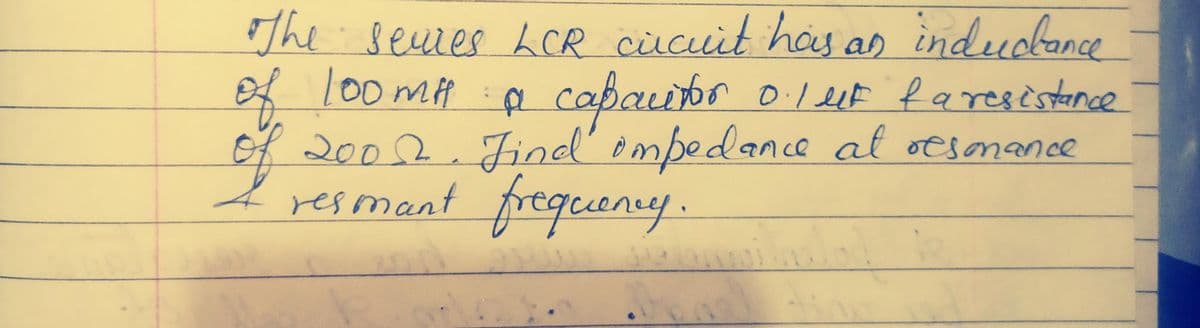 The series LCR circuit has an inductance
of 100 mH a capacitor 0.1 μF & a resistance
of 200 Ω. Find impedance at resonance
& resonant frequency.